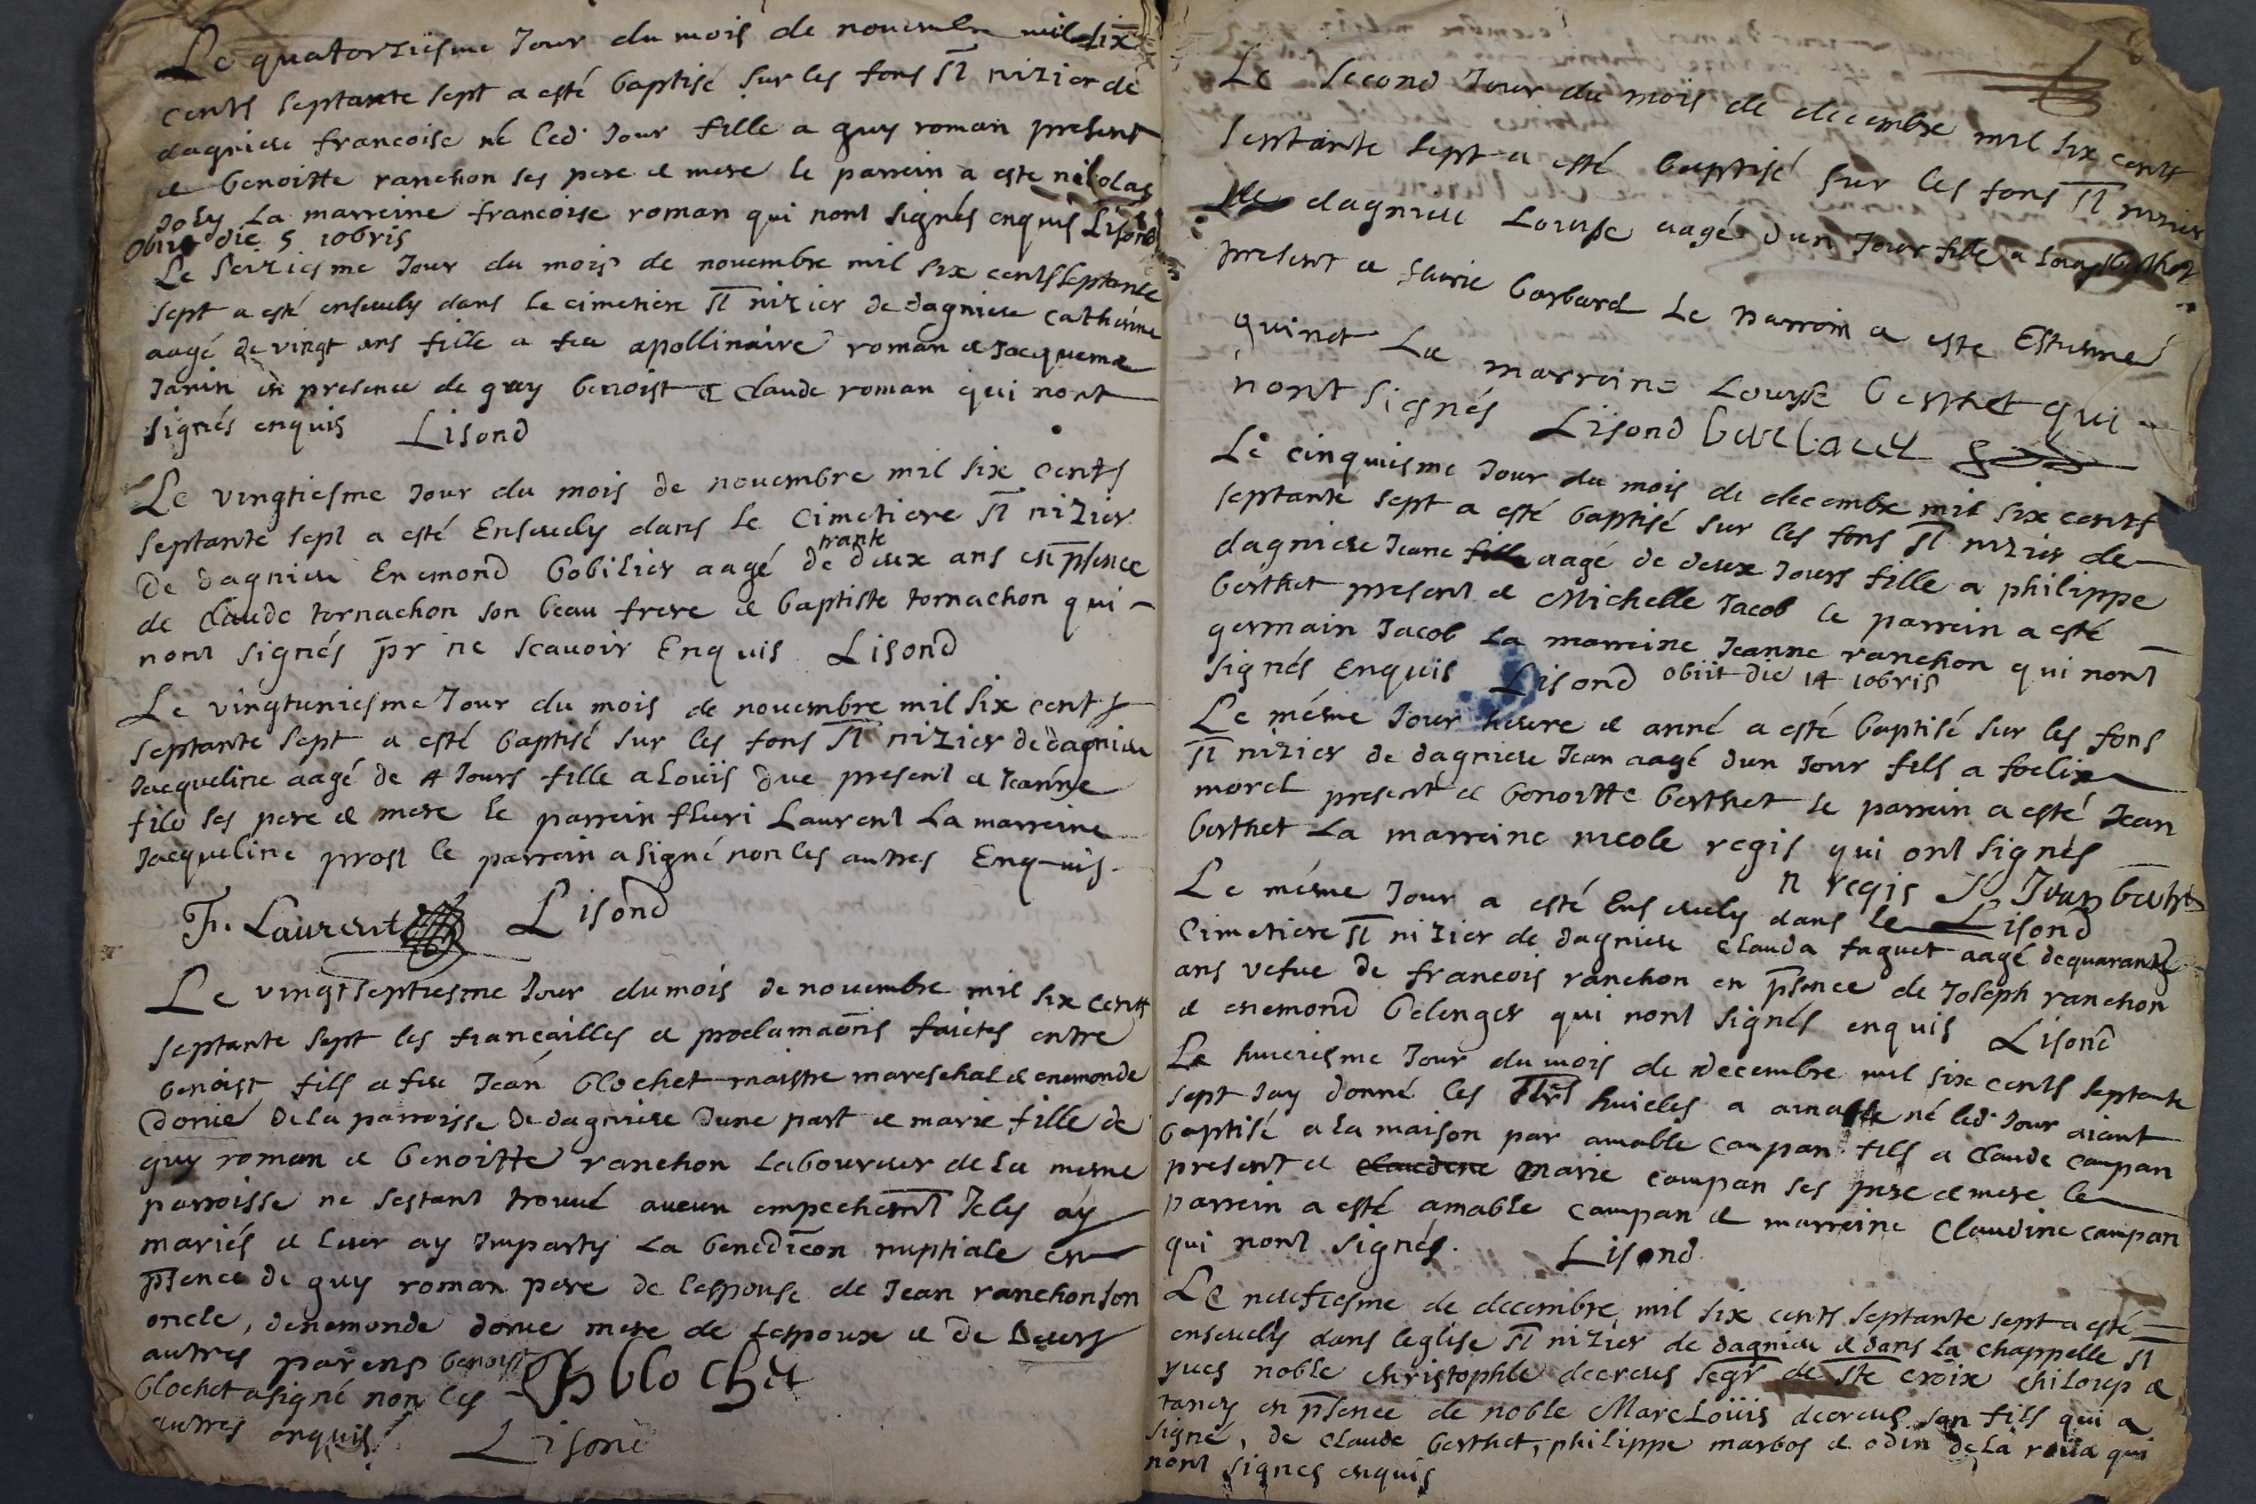 Le quatorziesme Jour du mois de novembre mil six
cents septante sept a esté baptisé sur les fons St nizier de
dagnieu francoise né led. Jour fille a guy roman present
et benoitte ranchon ses pere et mere le parrein a este nicolas
Joly La marreine francoise roman qui nont signés enquis Lisond
Obiit die 5 10bris
Le Seiziesme Jour du mois de novembre mil six cents septante
sept a esté ensevely dans le cimetiere St nizier de dagnieu catherine
aagé de vingt ans fille a feu apollinaire roman et Jacquema
Janin en presence de guy benoist et Claude roman qui nont
signés enquis Lisond
Le vingtiesme Jour du mois de novembre mil six cents
septante sept a esté Ensevely dans le Cimetiere St nizier
trante
De dagnieu Enemond bobilier aagé de deux ans en psence
de Claude tornachon son beau frere et baptiste tornachon qui
nont signés pr ne scavoir Enquis Lisond
Le vingtuniesme Jour du mois de novembre mil six cents
septante sept a esté baptisé sur les fons St nizier de dagnieu
Jacqueline aagé de 4 Jours fille a Loüis due present et Jeanne
filó ses pere et mere le parrein fleuri Laurent La marreine
Jacqueline prost le parrein a signé non les autres Enquis
F. Laurent Lisond
Le vingtseptiesme Jour du mois de novembre mil six cents
septante sept les fiancailles et proclamaons faictes entre
benoist fils a feu Jean blochet maistre mareschal et enemonde
donie de la parroisse de dagnieu dune part et marie fille de
guy roman et benoitte ranchon Laboureur de la mesme
parroisse ne sestant trouvé aucun empechemt Je les ay
mariés et leur ay Imparty La benediceon nuptiale en
psence de guy roman pere de lespouse de Jean ranchon son
oncle, denemonde donie mere de lespoux et de Divers
autres parens benoist
blochet a signé non les B blochet
autres enquis Lisond
Le second Jour du mois de decembre mil six cents
septante sept a esté baptisé sur les fons St nizier
de dagnieu Louyse aagé dun Jour fille a Louys berthet
present et barbard Le parrein a este Estienne
quinet La marreine Louyse berthet qui
nont signés Lisond
Le cinquiesme Jour du mois de decembre mil six cents
septante sept a esté baptisé sur les fons St nizier de
dagnieu Jeane fille aagé de deux Jours fille a philippe
berthet present et Michelle Jacob le parrein a esté
germain Jacob La marreine Jeanne ranchon qui nont
signés Enquis Lisond obiit die 14 10bris
Le mésme Jour heure et anné a esté baptisé sur les fons
St nizier de dagnieu Jean aagé dun Jour fils a foelix
morel present et benoitte berthet le parrein a esté Jean
berthet La marreine nicole regis qui ont signés
n regis Jean berthet
Le mésme Jour a esté Ensevely dans le Lisond
Cimetiere St nizier de dagnieu Clauda faguet aagé de quarante
ans vefue de francois ranchon en psence de Joseph ranchon
et enemond belenger qui nont signés enquis Lisond
Le huictiesme Jour du mois de decembre mil six cents septante
sept Jay donné les Stes huicles a amable né led. Jour aiant
baptisé a la maison par amable caupan fils a Claude caupan
present et claudine Marie caupan ses pere et mere le
parrein a esté amable caupan et marreine Claudine caupan
qui nont signés. Lisond
Le neufiesme de decembre mil six cents septante sept a esté
ensevely dans leglise St nizier de dagnieu et dans La chappelle St
yues noble christophle decreus segr de ste croix chiloup et
tancy en psence de noble Marc Loüis decreus son fils qui a
signé, de Claude berthet, philippe marbos et odin de la roüa qui
nont signes enquis